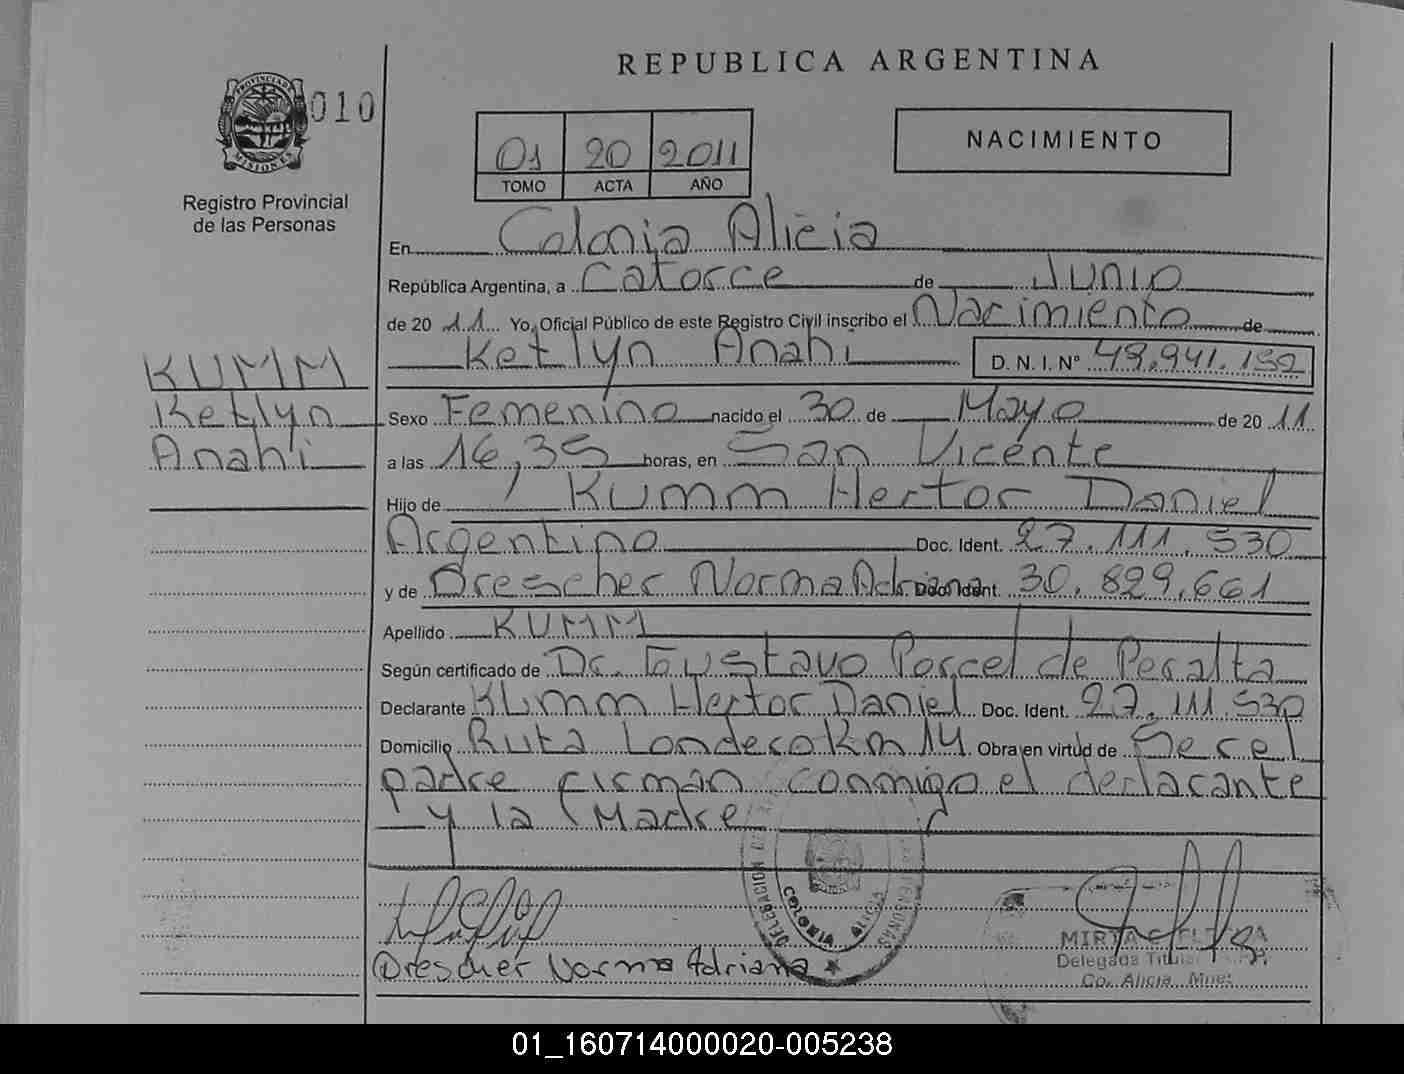 REPUBLICA ARGENTINA
PROVINCIA DE
MISIONES
010
Registro Provincial
de las Personas
01 20 2011
TOMO ACTA AÑO
NACIMIENTO
En Colonia Alicia
República Argentina, a Catorce de Junio
de 20 11 Yo, Oficial Público de este Registro Civil inscribo el Nacimiento de
Ketlyn Anahi D. N. I. Nº
KUMM
Ketlyn
Anahi
Sexo Femenino nacido el 30 de Mayo de 20 11
a las 16,35 horas, en San Vicente
Hijo de Kumm Hector Daniel
Argentino Doc. Ident. 27.111.530
y de Drescher Norma Adriana Doc. Ident. 30.829.661
Apellido KUMM
Según certificado de Dr. Gustavo Porcel de Peralta
Declarante Kumm Hector Daniel Doc. Ident. 27.111.530
Domicilio Ruta Londero Km 14 Obra en virtud de Ser el
padre firman conmigo el declarante
y la Madre
DELEGACION
PERSONAS
COLONIA ALICIA
Drescher Norma Adriana
MIRTA
Delegada Titular
Co. Alicia Mnes
01_160714000020-005238